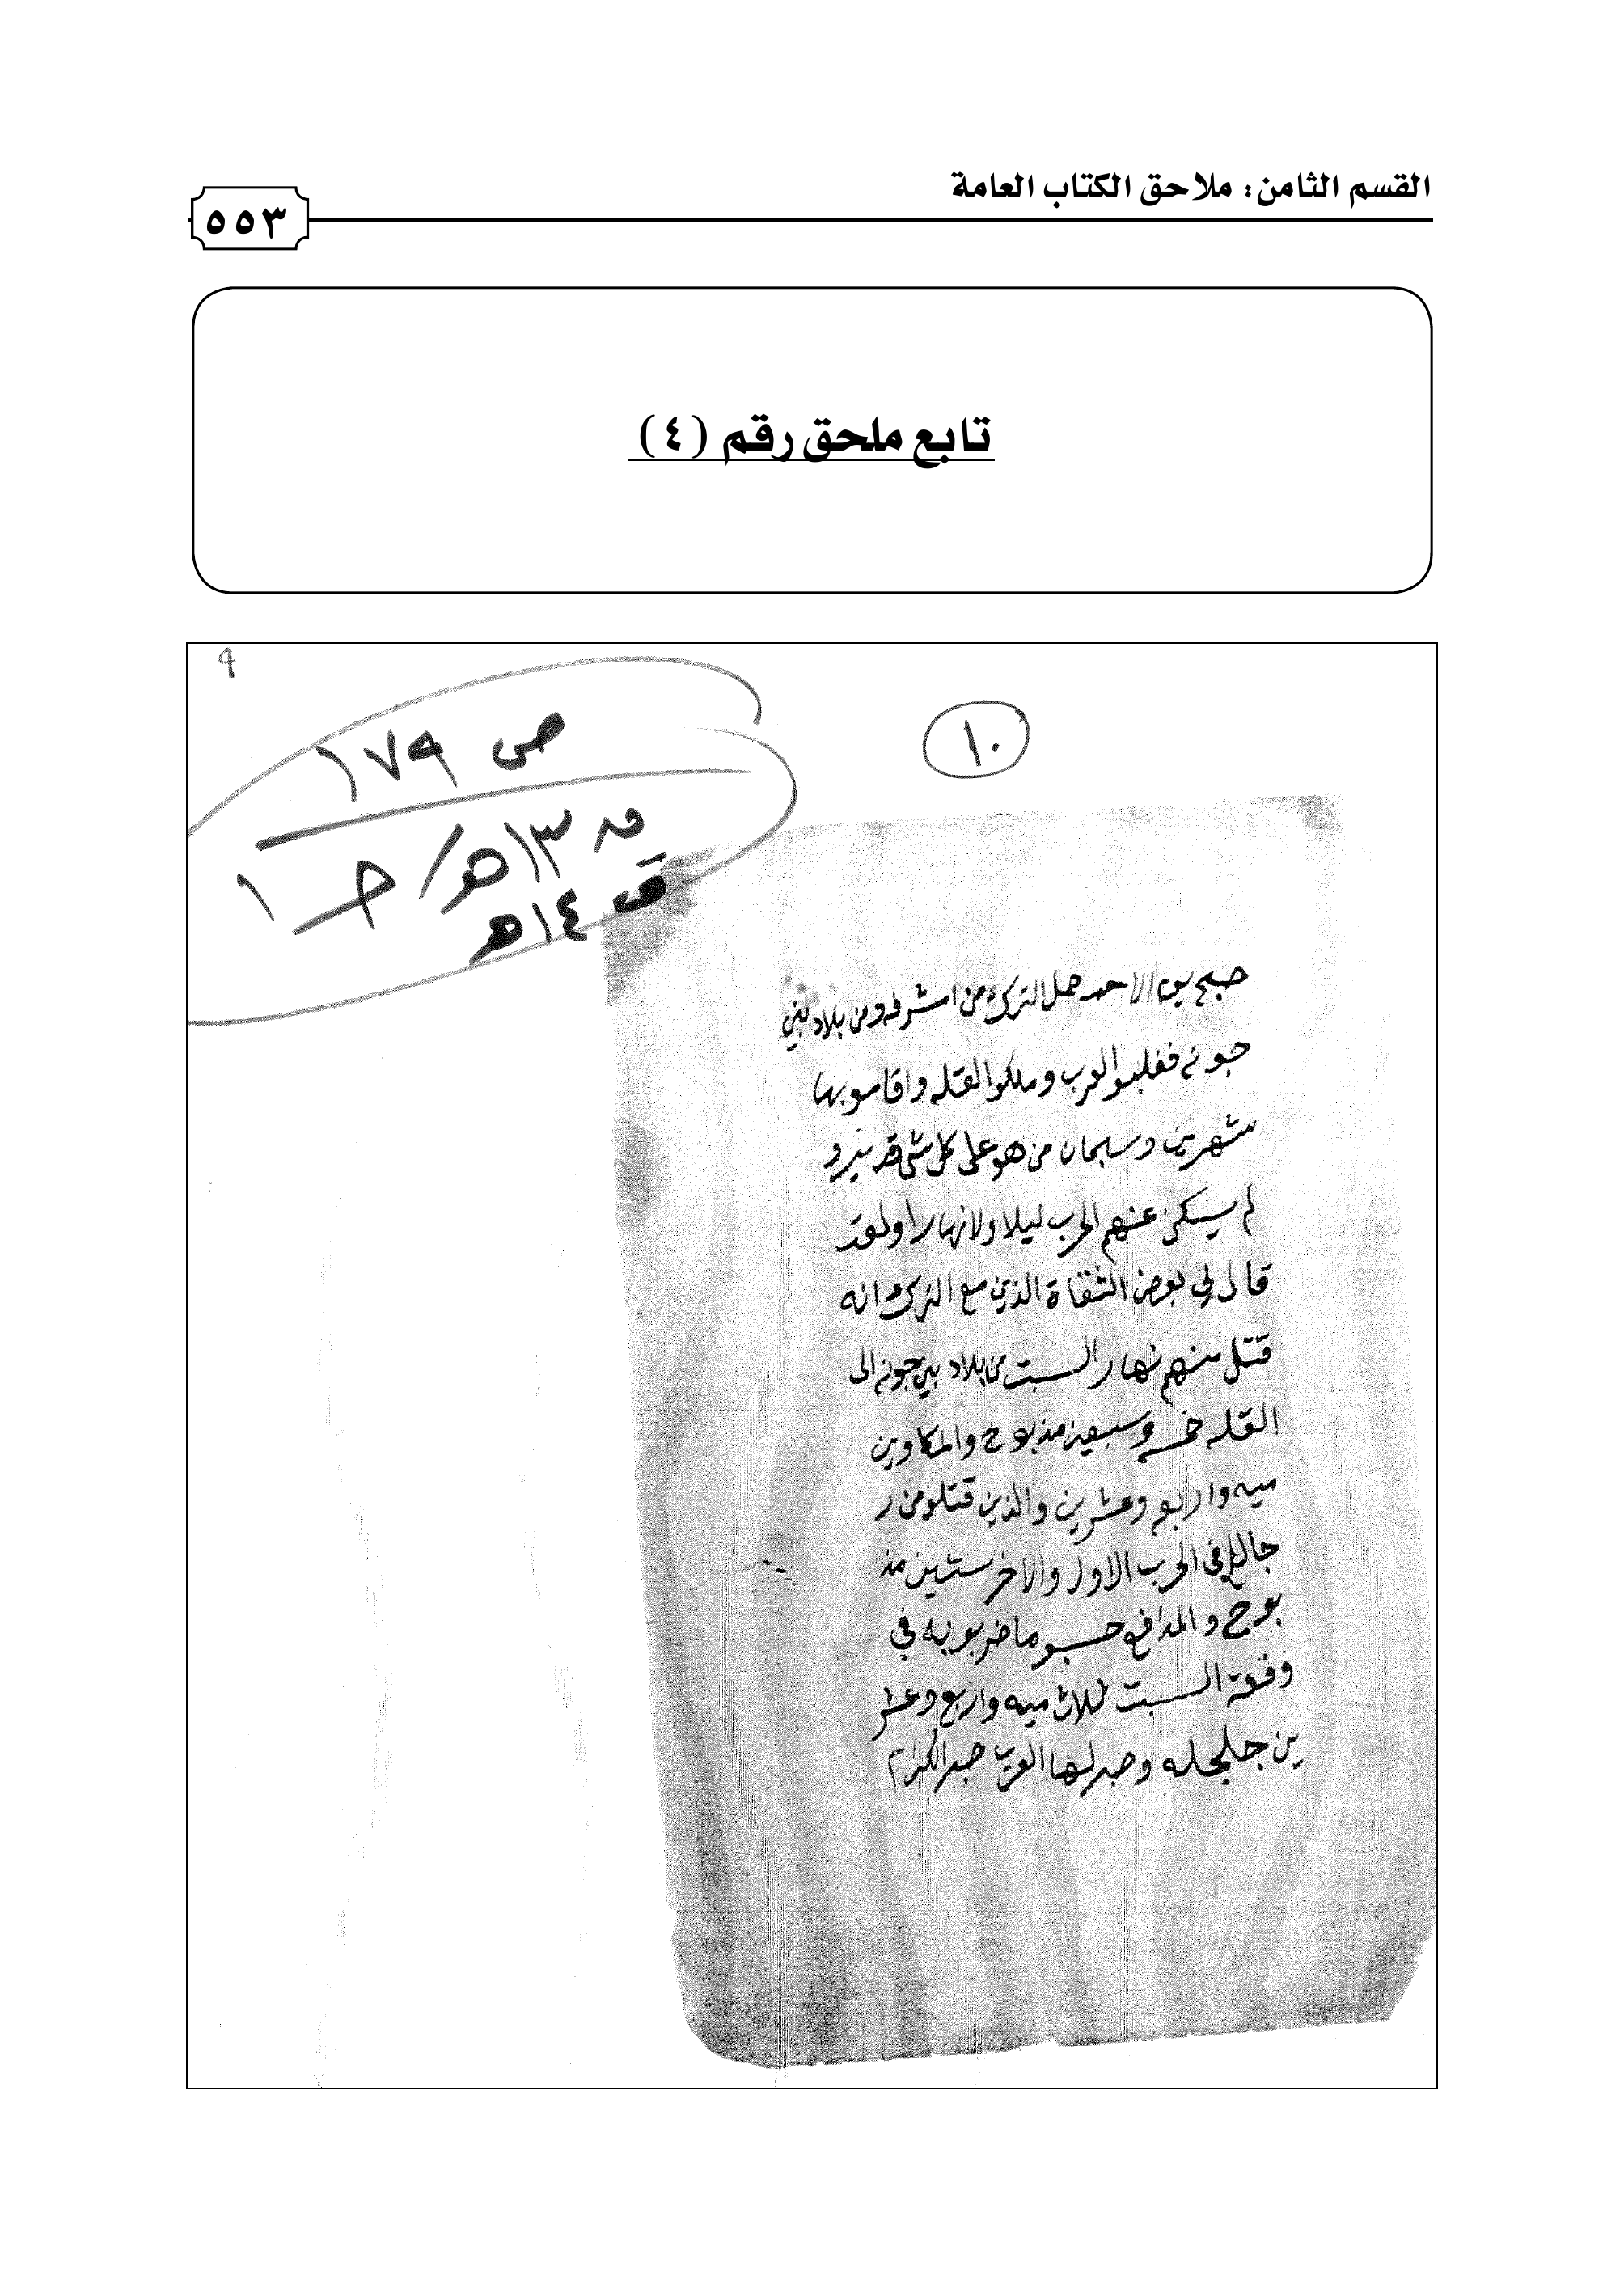 القسم الثامن: ملاحق الكتاب العامة
٥٥٣
تابع ملحق رقم (٤)
٩
ص ١٧٩
ق ١٣هـ/ حـ ١
ق ١٤هـ
١٠
صبح يوم الاحد حمل الترك من اشرفه ومن بلاد بني
جونه فغلبو العرب وملكوا القله واقاموبها
شهرين وسبحان من هو على كل شي قدير و
لم يسكن عنهم الحرب ليلا ولا نهارا ولقد
قال لي بعض الثقاة الذين مع الترك انه
قتل منهم نهار السبت من بلاد بني جونه الى
القله خمسه وسبعين مذبوح والمكاوين
ميه واربع وعشرين والذين قتلو من ر
جال في الحرب الاول والاخر ستين مذ
بوح والمدافع حسبو ما ضربو به في
وقعة السبت ثلاث ميه واربع وعشر
ين جلجله وصبر لها العرب صبر الكرام